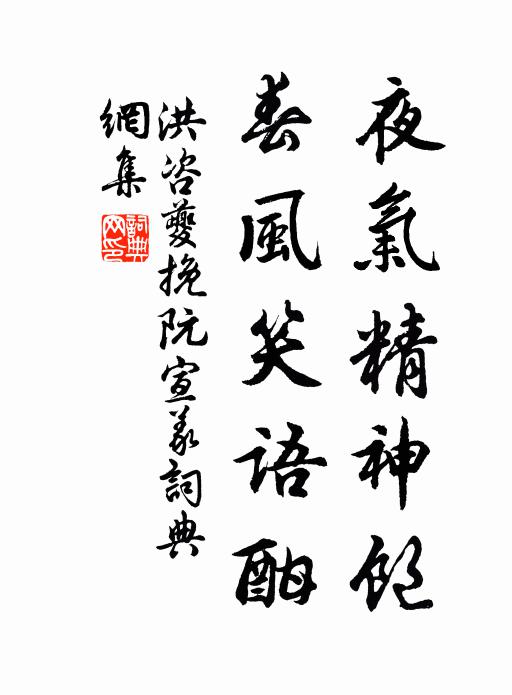 夜氣精神飽
春風笑語酣
洪咨夔挽阮宣義詞典
網集
詞典
网印